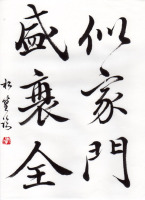 似家門
盛衰全